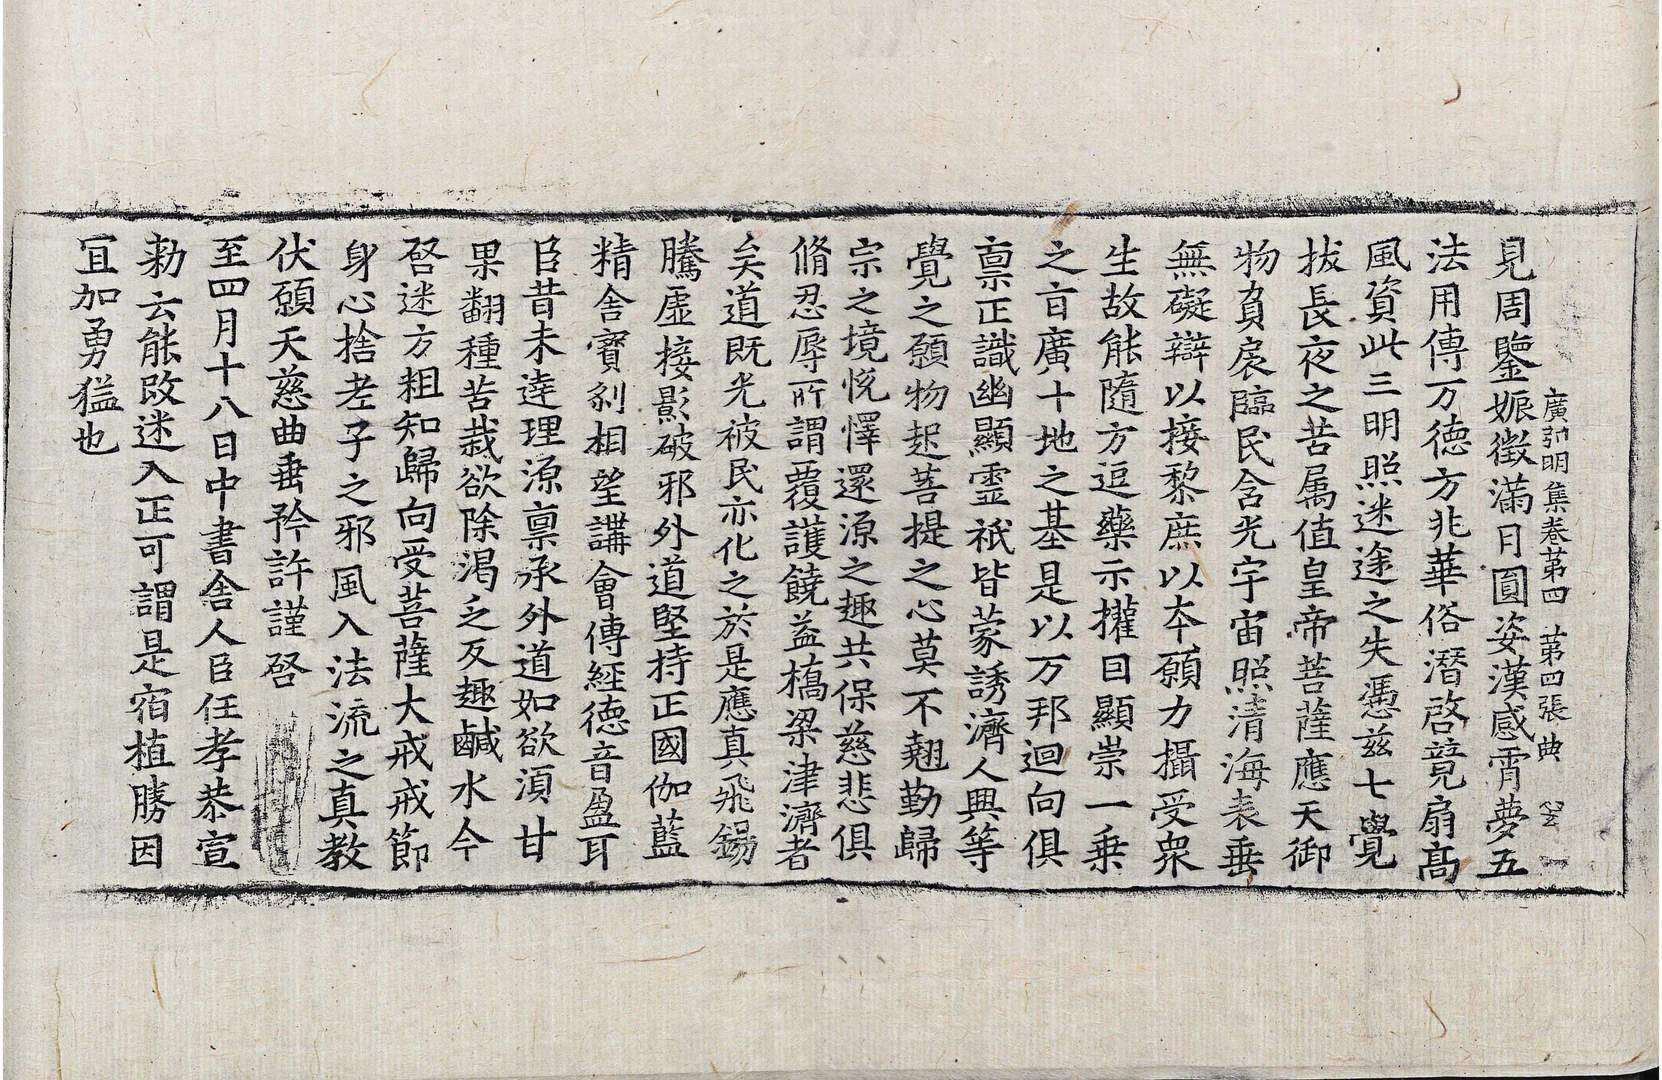 廣弘明集卷第四 第四張 典
見周鑒娠徵滿日圓姿漢感霄夢五
法用傳万德方兆華俗潛啓竟扇高
風資此三明照迷途之失憑茲七覺
拔長夜之苦属值皇帝菩薩應天御
物負扆臨民含光宇宙照清海表垂
無礙辯以接黎庶以本願力攝受衆
生故能隨方逗藥示權曰顯崇一乗
之㫖廣十地之基是以万邦迴向俱
稟正識幽顯靈祇皆蒙誘濟人興等
覺之願物起菩提之心莫不翹勤歸
宗之境悅懌還源之趣共保慈悲俱
脩忍辱所謂覆護饒益橋梁津濟者
矣道既光被民亦化之於是應真飛錫
騰虛接影破邪外道堅持正國伽藍
精舍寶刹相望講會傳經德音盈耳
臣昔未達理源稟承外道如欲須甘
果翻種苦栽欲除渴乏反趣鹹水今
啓迷方粗知歸向受菩薩大戒戒節
身心捨老子之邪風入法流之真教
伏願天慈曲垂矜許謹啓
至四月十八日中書舍人臣任孝恭宣
勑云能改迷入正可謂是宿植勝因
冝加勇猛也